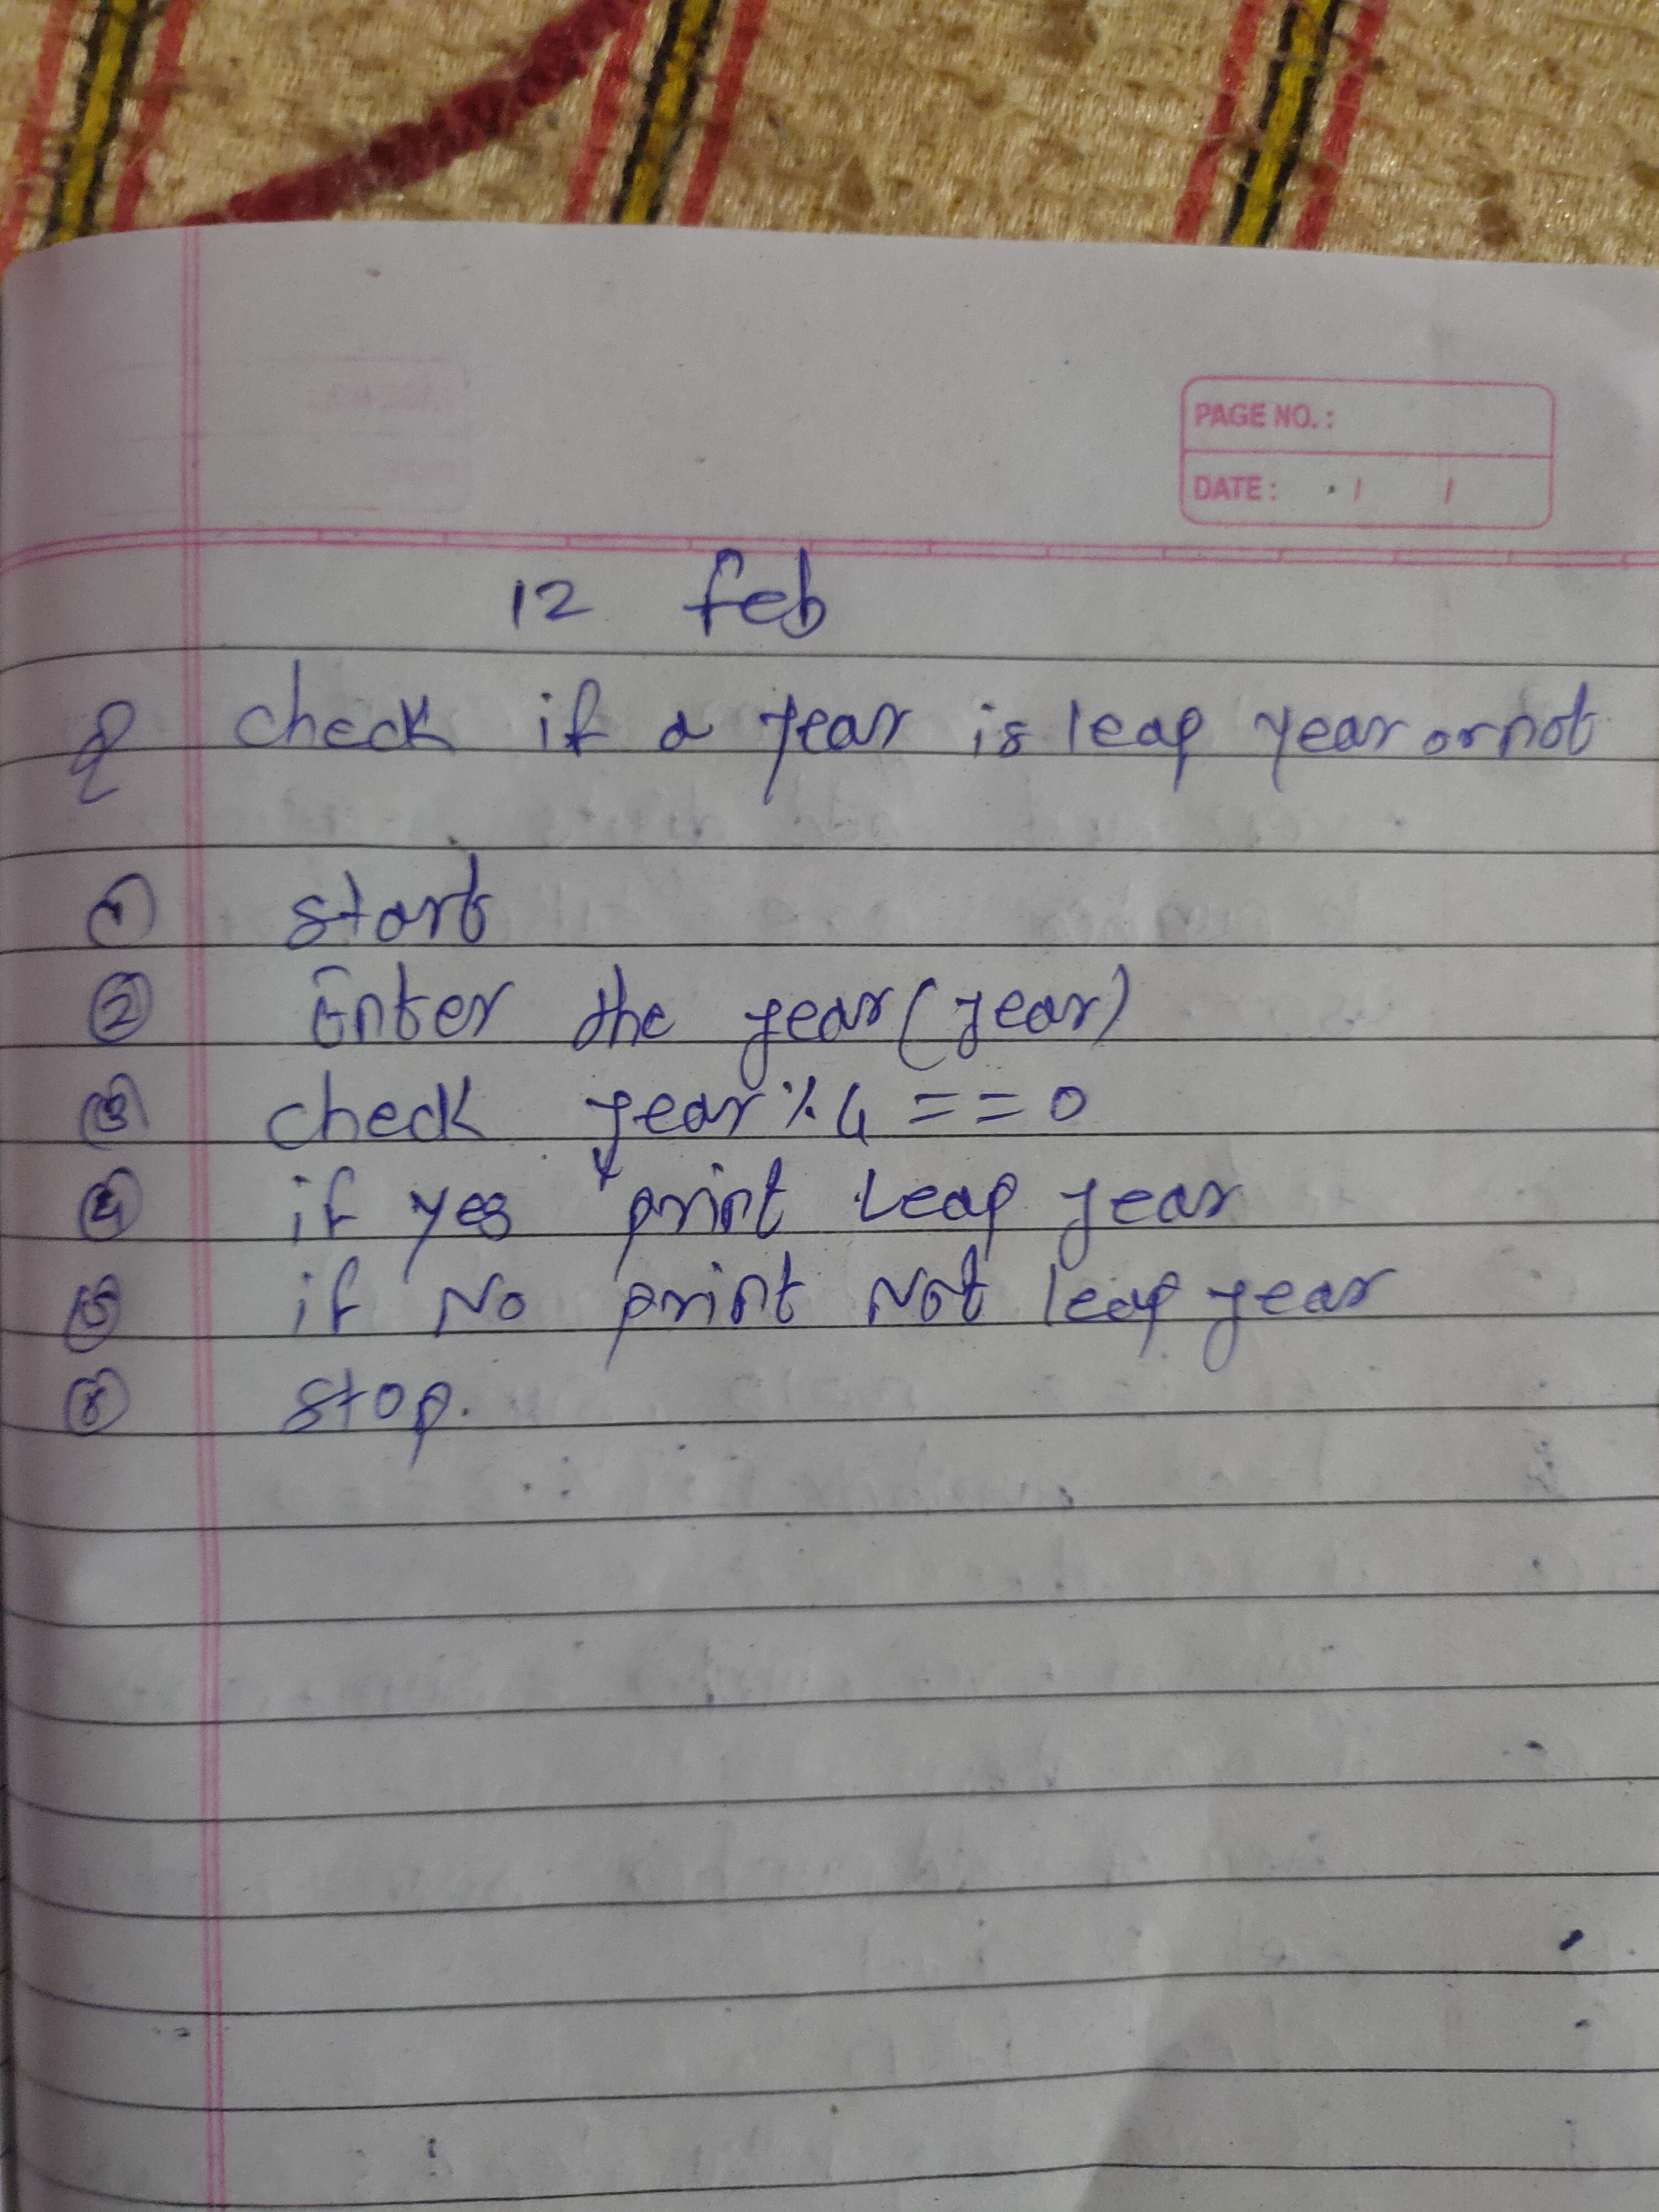 PAGE NO. :
DATE : / /
12 feb
Q check if a year is leap year or not
① start
② Enter the year (year)
③ check year % 4 == 0
④ if yes print Leap year
⑤ if No print Not leap year
stop.